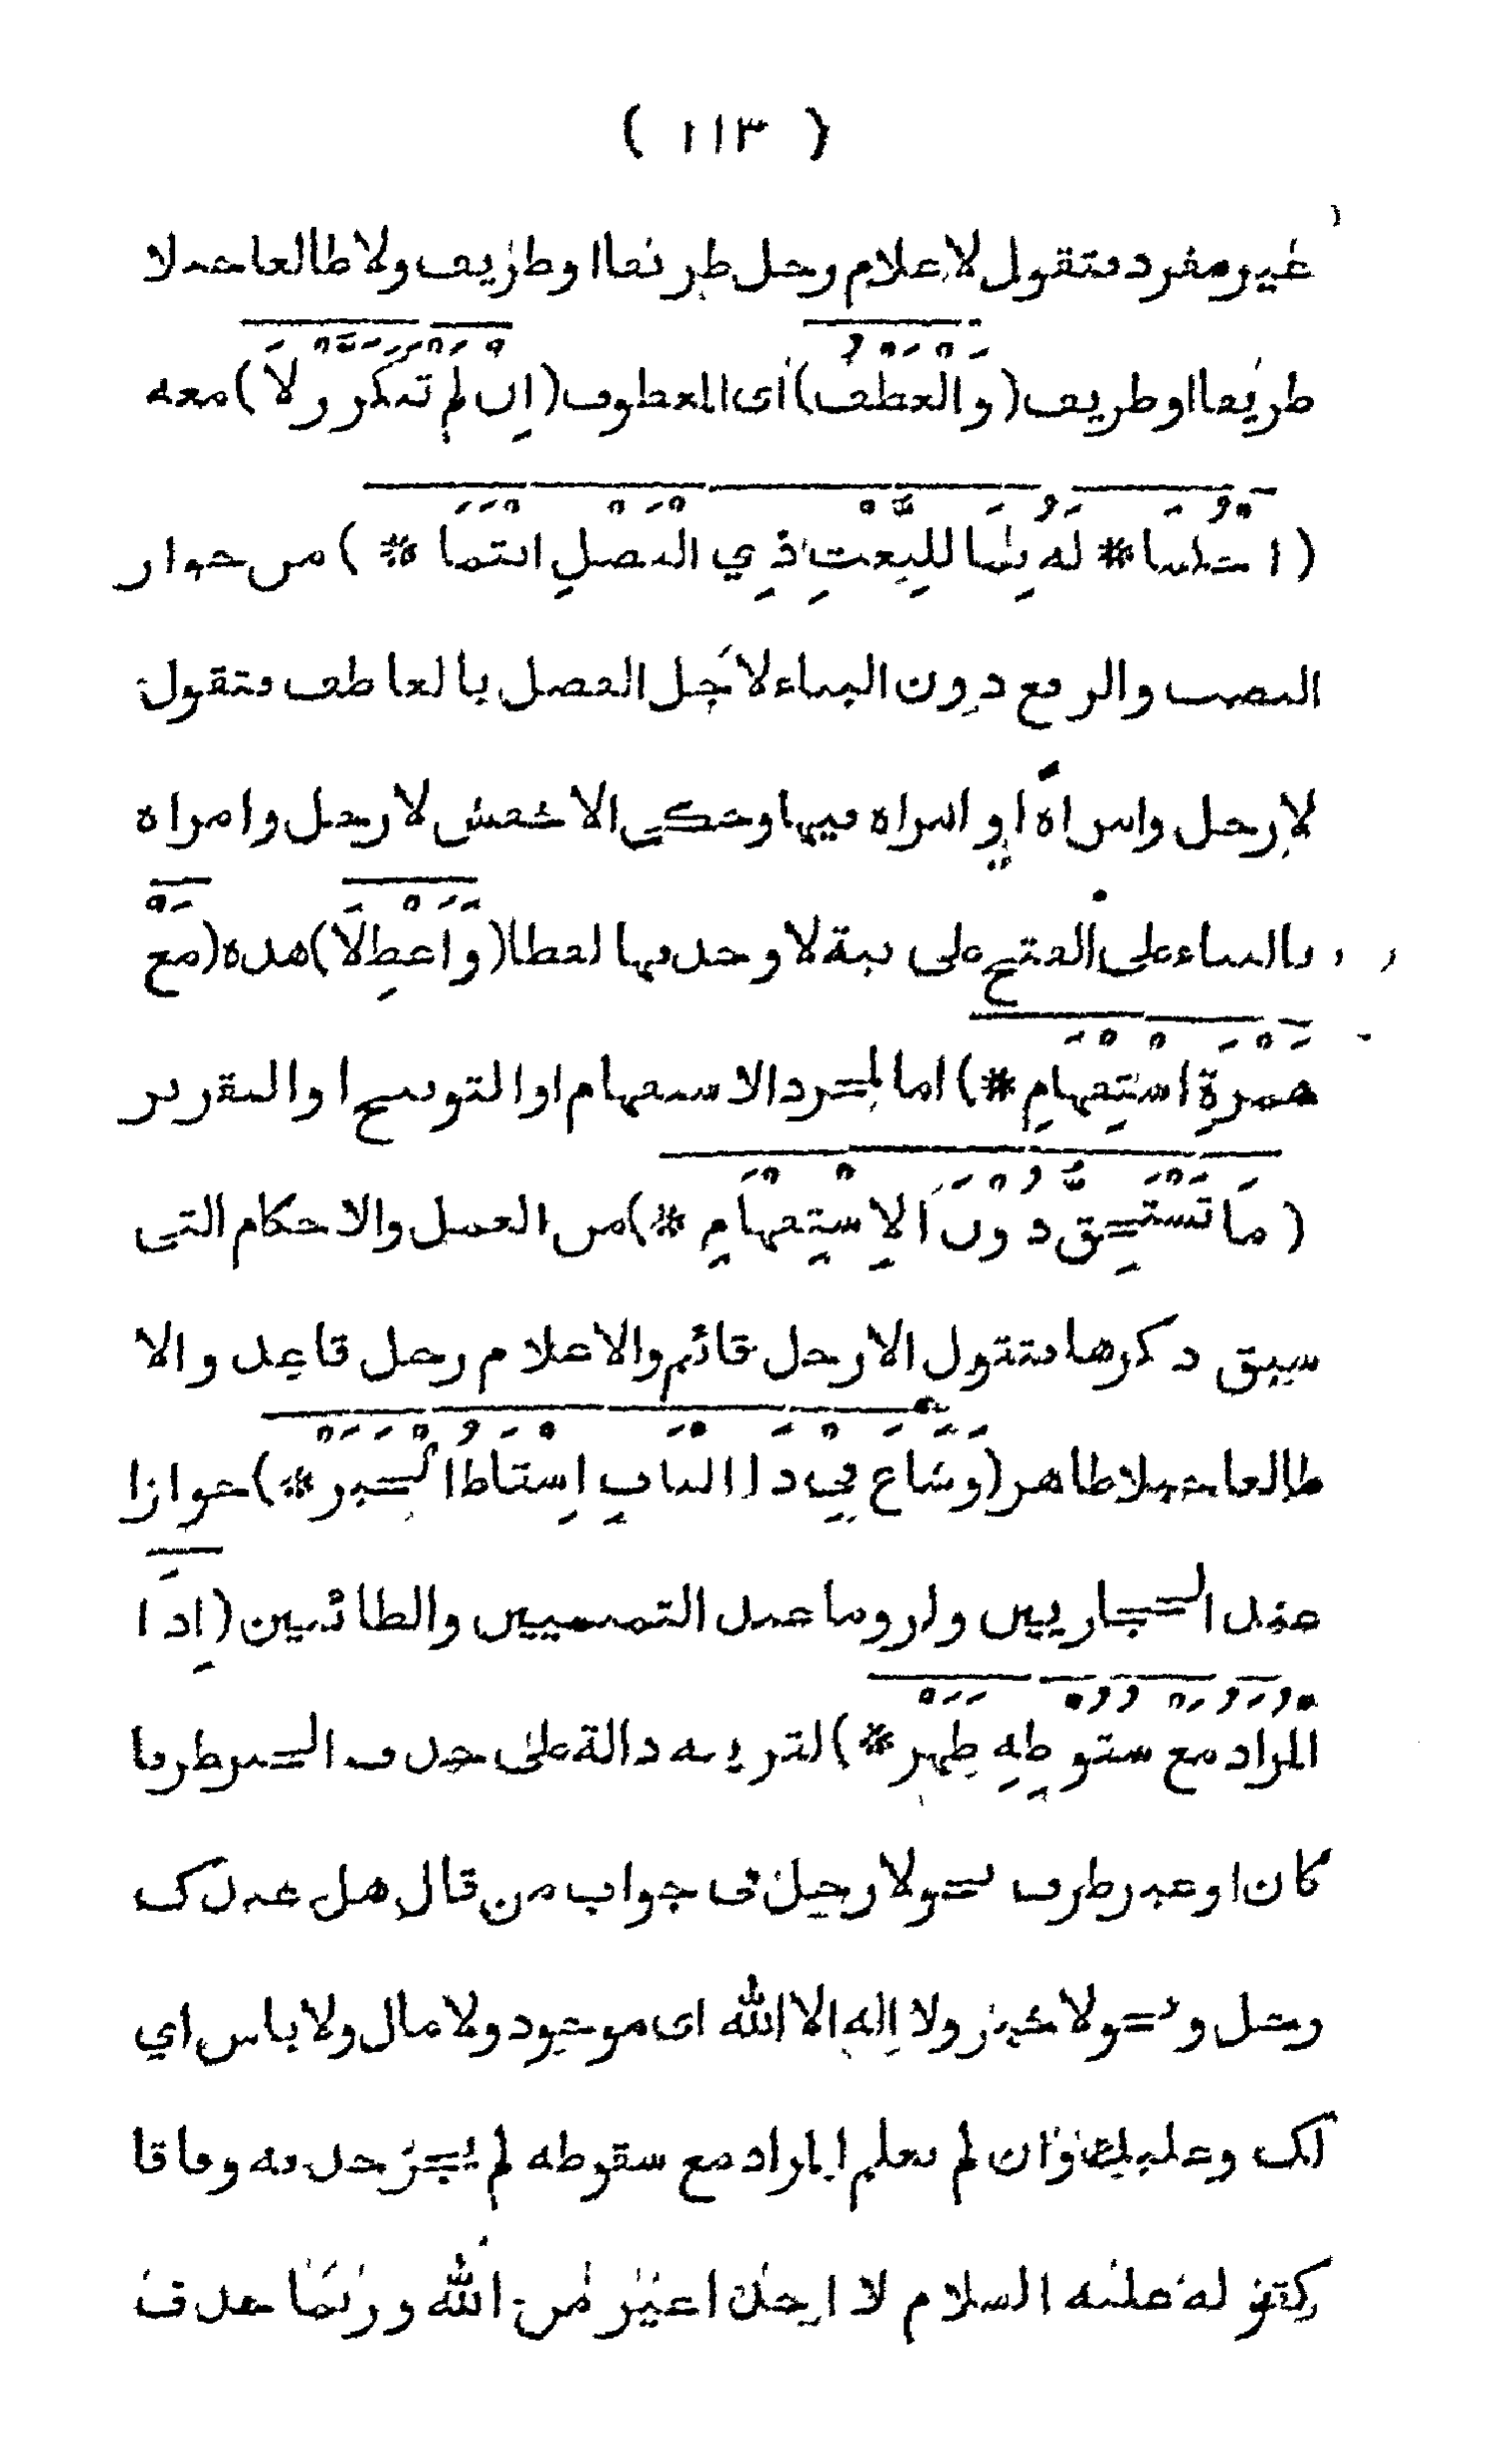 ( ١١٣ )
غير مفرد فتقول لا غلام رجل ظريفا او ظريف ولا طالعا جبلا
ظريفا او ظريف (والعطف) أى المعطوف (إن لم تتكرر ولا) معه
(احكما * له بما للنعت ذي الفصل انتمى *) من جواز
النصب والرفع دون البناء لأجل الفصل بالعاطف فتقول
لا رجل وامراة او امراة فيها وحكى الاخفش لا رجل وامراة
بالبناء على الفتح على نية لا وحذفها لفظا (وأعط لا) هذه (مع
همزة استفهام *) اما لمجرد الاستفهام او التوبيخ او التقرير
(ما تستحق دون الإستفهام *) من العمل والاحكام التى
سبق ذكرها فتقول الا رجل قائم والا غلام رجل قاعد والا
طالعا جبلا ظاهر (وشاع في ذا الباب إسقاط الخبر *) جوازا
عند الحجازيين ولزوما عند التميميين والطائيين (إذا
المراد مع سقوطه ظهر *) لقرينه دالة على حذف الخبر ظرفا
كان او غير ظرف نحو لا رجل فى جواب من قال هل عندك
رجل ونحو لا خير ولا إله الا الله اى موجود ولا مال ولا باس اي
لك وعليك وان لم يعلم المراد مع سقوطه لم يجز حذفه وفاقا
كقوله عليه السلام لا احد اغير من الله وربما حذف